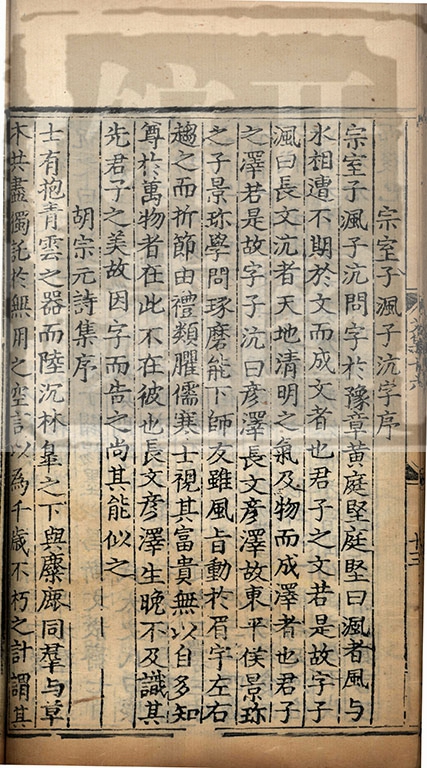 宗室子渢子沆字序
宗室子渢子沆問字於豫章黃庭堅庭堅曰渢者風与
水相遭不期於文而成文者也君子之文若是故字子
渢曰長文沆者天地清明之氣及物而成澤者也君子
之澤若是故字子沆曰彦澤長文彦澤故東平侯景珎
之子景珎學問琢磨能下師友雖風旨動於眉宇左右
趨之而折節由禮類臞儒寒士視其富貴無以自多知
尊於萬物者在此不在彼也長文彦澤生晚不及識其
先君子之美故因字而告之尚其能似之
胡宗元詩集序
士有抱青雲之器而陸沉林皐之下與麋鹿同羣与草
木共盡獨託於無用之空言以為千歳不朽之計謂其